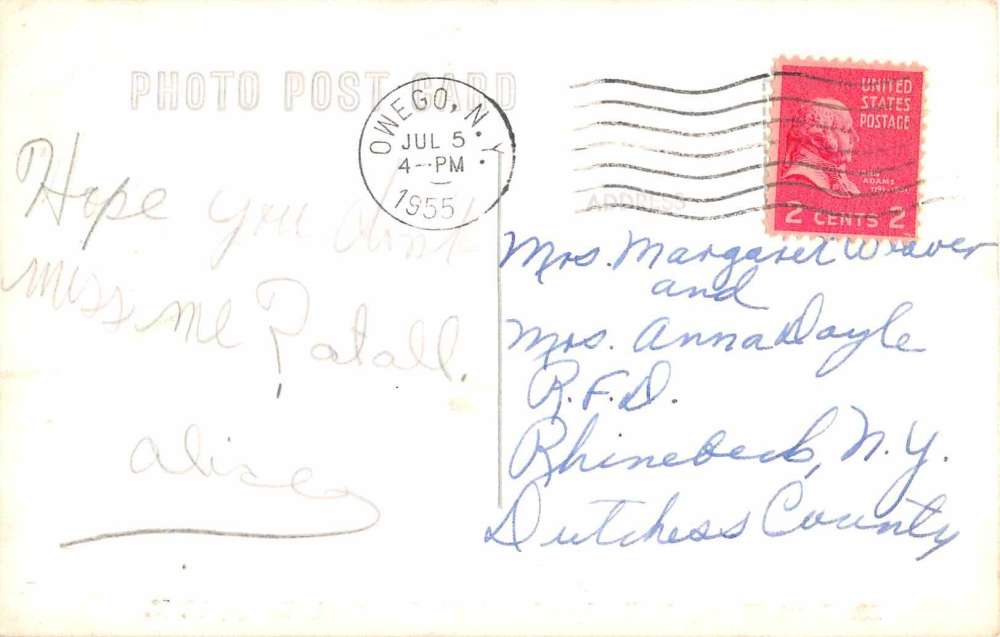 PHOTO POST CARD
OWEGO, N.Y.
JUL 5
4-PM
1955
UNITED
STATES
POSTAGE
JOHN
ADAMS
2 CENTS 2
ADDRESS
Hope you dint
miss me
Alice
Mrs. Margaret Weaver
and
Mrs. Anna Doyle
R.F.D.
Rhinebeck, N.Y.
Dutchess County